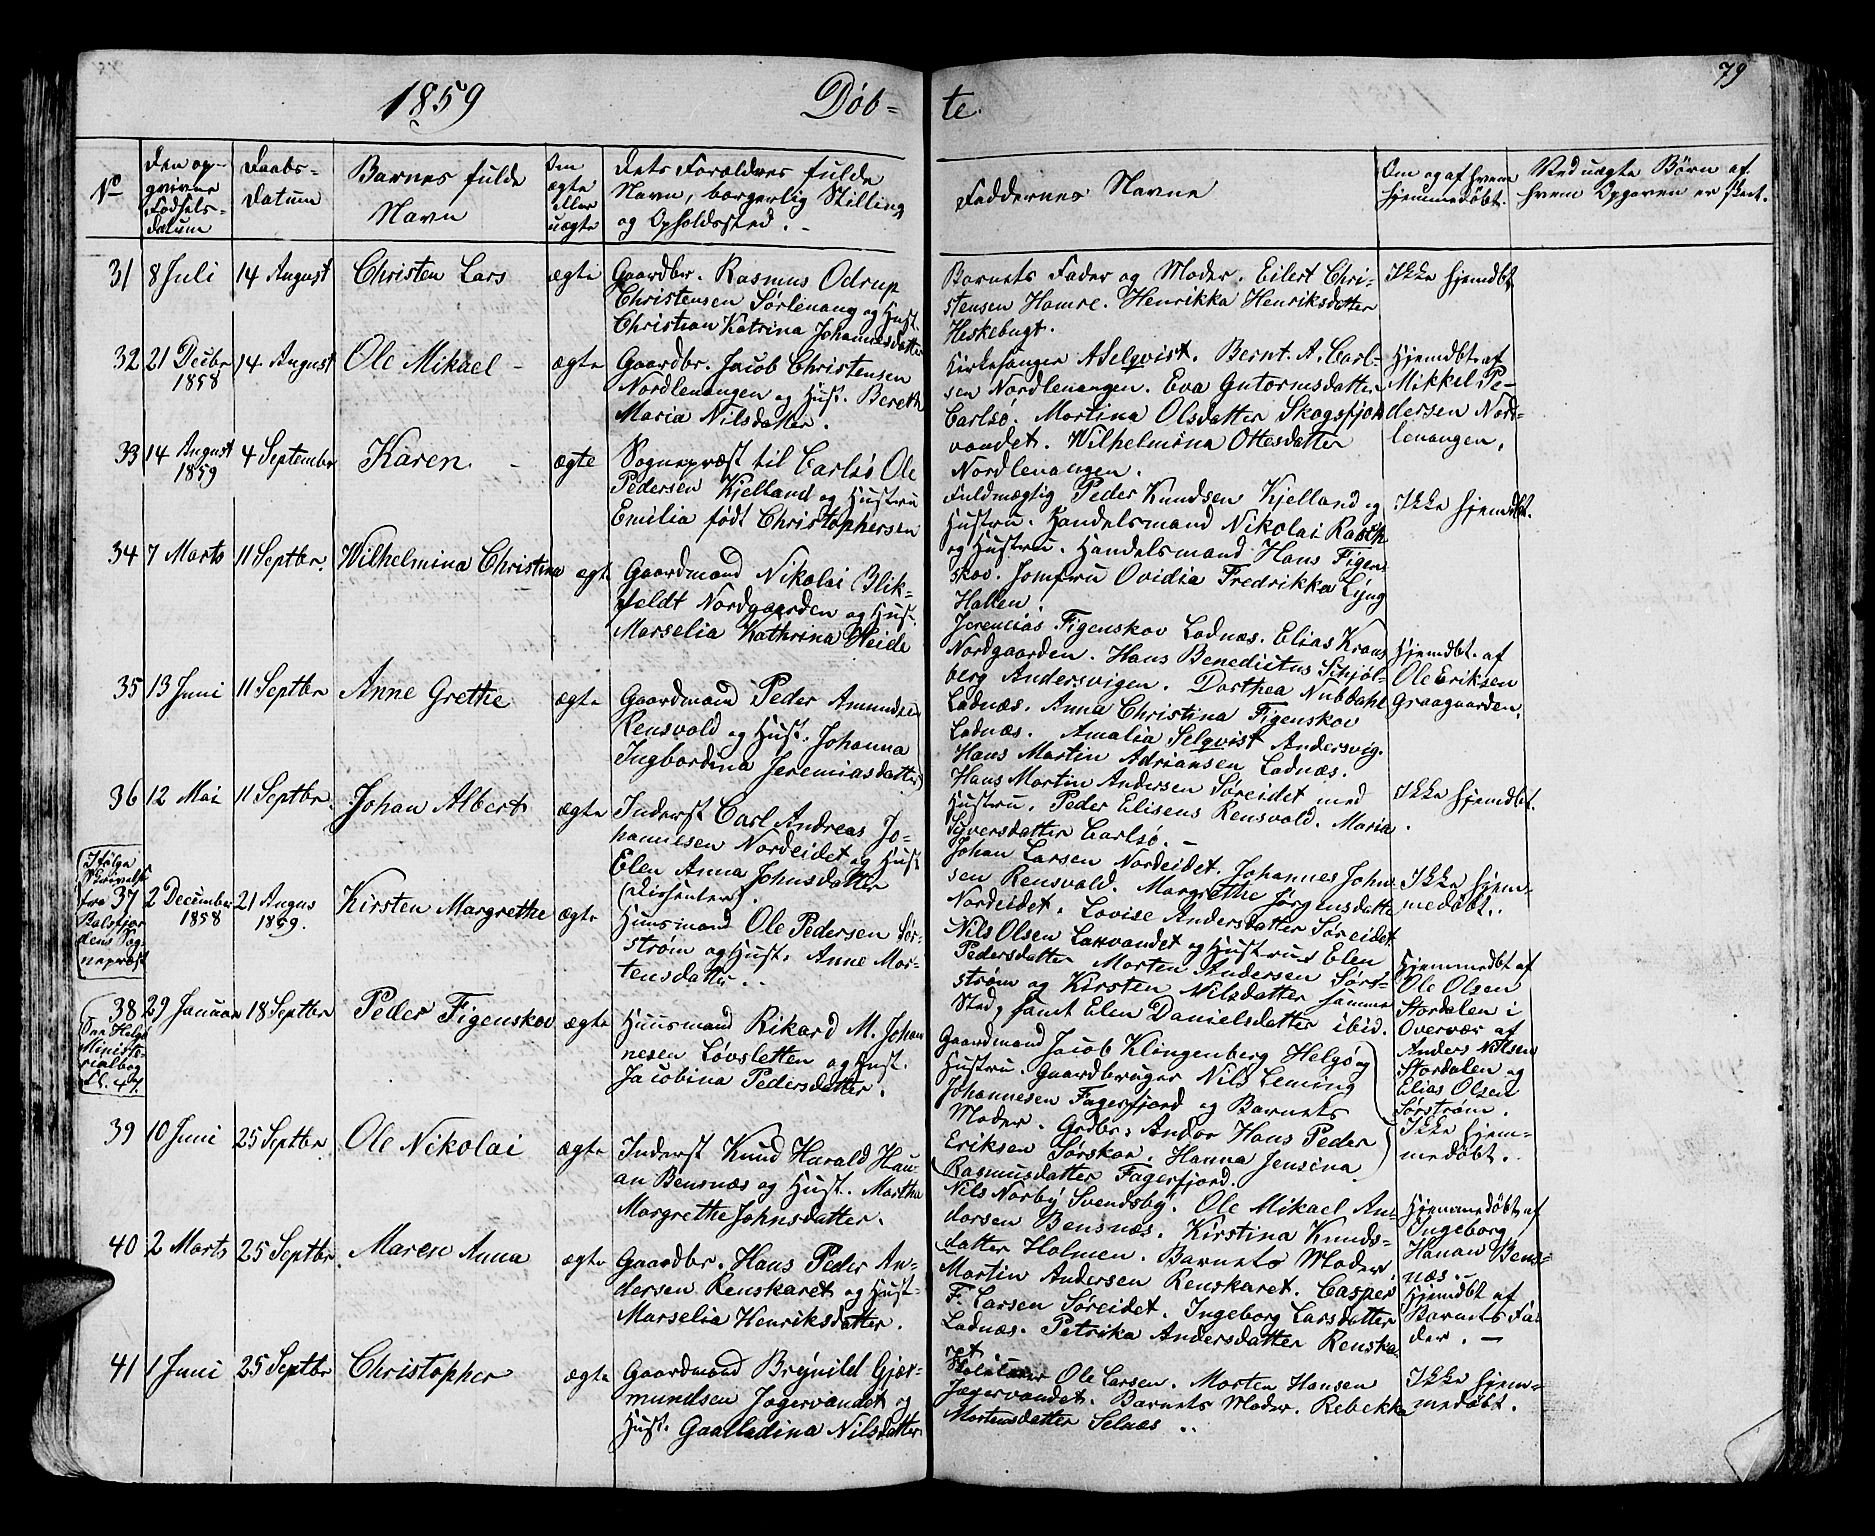 79
1859 Døb= te.
No
Den op-
givne
Fødsels-
datum
Daabs-
datum
Barnes fulde
Navn
Om
ægte
eller
uægte
Dets Forældres fulde
Navn, borgerlig Stilling
og Opholdssted.
Faddernes Navne
Om og af hvem
hjemmedøbt.
Ved uægte Børn af
hvem Opgaven er skeet.
31 8 Juli 14 August Christen Lars ægte
Gaardbr. Rasmus Odrup
Christensen Sørlenang og Hust.
Christian Katrina Johannesdatter
Barnets Fader og Moder. Eilert Chri-
stensen Hamre. Henrikka Henriksdatter
Heskebugt.
Ikke hjemdbt
32 21 Decbr 14 August Ole Mikael - ægte
1858
Gaardbr. Jacob Christensen
Nordlenangen og Hust. Bereth
Maria Nilsdatter.
Kirkesanger A Selqvist. Bernt. A. Carl-
sen Nordlenangen. Eva Gutormsdatter
Carlsø. Martina Olsdatter Skogsfjord
vandet. Wilhelmina Ottesdatter
Nordlenangen.
Hjemdbt. af
Mikkel Pe-
dersen Nord-
lenangen.
33 14 August 4 September Karen - ægte
1859
Sognepræst til Carlsø Ole
Pedersen Kjelland og Hustru
Emilia født Christophersen
Fuldmægtig Peder Knudsen Kjelland og
Hustru. Handelsmand Nikolai Rasch
og Hustru. Handelsmand Hans Figen
skov. Jomfru Ovidia Fredrikka Lyng
Hallen.
Ikke hjemdbt.
34 7 Marts 11 Septbr. Wilhelmina Christina ægte
Gaardmand Nikolai Blik-
feldt Nordgaarden og Hust.
Marselia Kathrina Heide
Jeremias Figenskov Ladnæs. Elias Krans
Nordgaarden. Hans Benedictus Schjøl-
berg Andersvigen. Dorthea Nubdahl
Ladnæs. Anna Christina Figenskov
Ladnæs. Amalia Selqvist Andersvig.
Hans Martin Adriansen Ladnæs.
Hjemdbt. af
Ole Eriksen
Graagaarden.
35 13 Juni 11 Septbr Anne Grethe ægte
Gaardmand Peder Amundsen
Rensvold og Hust. Johanna
Ingbordina Jeremiasdatter
Hans Martin Andersen Søreidet med
Hustru. Peder Elisens Rensvold. Maria
Syversdatter Carlsø. -
Ikke hjemdbt.
36 12 Mai 11 Septbr. Johan Albert ægte
Inderst Carl Andreas Jo-
hannesen Nordeidet og Hust
Elen Anna Johnsdatter
(Dissenter).
Johan Larsen Nordeidet. Johannes John
sen Rensvald. Margrethe Jørgensdatter
Nordeidet. Lovise Andersdatter Søreidet
Ikke hjem-
medøbt.
Ifølge
Skrivelse
fra 37
Balsfjor
dens Sog-
nepræst
2 December 21 Augus Kirsten Margrethe ægte
1858 1859.
Huusmand Ole Pedersen Sør-
strøm og Hust. Anne Mor-
tensdatter.
Nils Olsen Laxvandet og Hustrus Elen
Pedersdatter Morten Andersen Sørs-
strøm og Kirsten Nilsdatter samme
Sted, samt Elen Danielsdatter ibid.
Hjemmedbt af
Ole Olsen
Stordalen i
Overvær af
Anders Nilsen
Stordalen og
Elias Olsen
Sørstrøm.
38
Fra Helgø
Ministe-
rialbog
29 Januar 18 Septbr Peder Figenskov ægte
Huusmand Rikard M. Johan
nesen Løvsletten og Hust.
Jacobina Pedersdatter.
Gaardmand Jacob Klingenberg Helgø og
Hustru. Gaardbruger Nils Leming
Johannesen Fagerfjord og Barnets
Moder. Grdbr: Andor Hans Peder
Eriksen Sørskar. Hanna Jensina
Rasmusdatter Fagerfjord.
Ikke hjem-
medøbt.
39 10 Juni 25 Septbr. Ole Nikolai ægte
Inderst Knud Harald Hau-
an Bensnæs og Hust. Martha
Margrethe Johnsdatter.
Nils Norby Svendsby. Ole Mikael An-
dersen Bensnæs. Kirstina Knuds-
datter Holmen. Barnets Moder.
Hjemmedøbt af
Ingeborg
Hanan Bens-
næs. -
40 2 Marts 25 Septbr. Maren Anna ægte
Gaardbr. Hans Peder An-
dersen Renskaret og Hust-
Marselia Henriksdatter.
Martin Andersen Renskaret. Casper
F. Larsen Søreidet. Ingeborg Larsdatter
Ladnæs. Petrika Andersdatter Renska-
ret.
Hjemdbt af
Barnets Fa-
der. -
41 1 Juni 25 Septbr Christopher ægte
Gaardmand Brynild Gjær-
mundsen Jægervandet og
Hust. Gaalladina Nilsdatter.
Ole Larsen. Morten Hansen
Jægervandet. Barnets Moder. Rebekka
Mortensdatter Selnæs.
Ikke hjem-
medøbt.